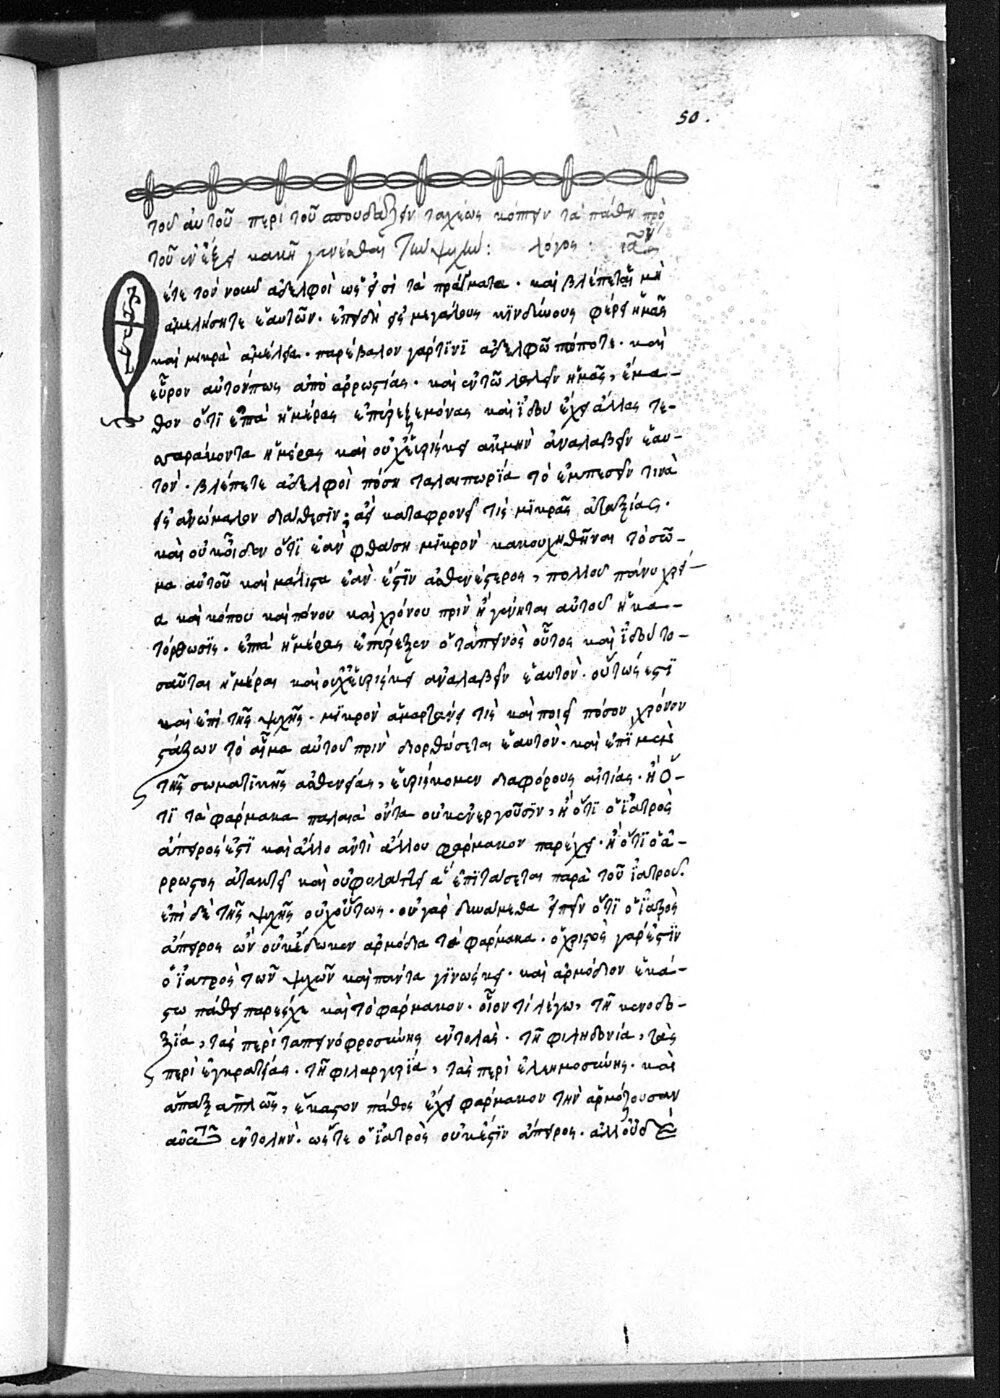 50.
τοῦ αὐτοῦ περὶ τοῦ σπουδάζειν ταχέως κόπτειν τὰ πάθη πρὸ
τοῦ ἐν ἕξει κακῇ γενέσθαι τὴν ψυχήν: λόγος: ια
Θέτε τὸν νοῦν ἀδελφοὶ ὡς εἰσὶ τὰ πράγματα. καὶ βλέπετε μὴ
ἀμελήσητε ἑαυτῶν. ἐπειδὴ εἰς μεγάλους κινδύνους φέρει ἡμᾶς
καὶ μικρὰ ἀμέλεια. παρέβαλον γάρ τινι ἀδελφῶ πώποτε. καὶ
εὗρον αὐτὸν ἀπὸ ἀρρωστίας. καὶ ἐν τῶ λαλεῖν ἡμᾶς, ἔμα-
θον ὅτι ἑπτὰ ἡμέρας ἐπύρεξε μόνας καὶ ἰδοὺ ἔχει ἄλλας τε-
σσαράκοντα ἡμέρας καὶ οὐχ εὑρίσκει ἀκμὴν ἀναλαβεῖν ἑαυ-
τόν. βλέπετε ἀδελφοὶ πόση ταλαιπωρία τὸ ἐμπεσεῖν τινὰ
εἰς ἀνώμαλον διάθεσιν; ἀεὶ καταφρονεῖ τις μικρᾶς ἀταξίας.
καὶ οὐκ οἶδεν ὅτι ἐὰν φθάση μικρὸν κακουχηθῆναι τὸ σῶ-
μα αὐτοῦ καὶ μάλιστα ἐὰν ἐστὶν ἀσθενέστερος, πολλοῦ πάνυ χρεί-
α καὶ κόπου καὶ πόνου καὶ χρόνου πρὶν ἢ γένηται αὐτοῦ ἡ κα-
τόρθωσις. ἑπτὰ ἡμέρας ἐπύρεξεν ὁ ταπεινὸς οὗτος καὶ ἰδοὺ το-
σαῦται ἡμέραι καὶ οὐχ εὑρίσκει ἀναλαβεῖν ἑαυτόν. οὕτως ἐστὶ
καὶ ἐπὶ τῆς ψυχῆς. μικρὸν ἁμαρτάνει τὶς καὶ ποιεῖ πόσον χρόνον
στάζων τὸ αἷμα αὐτοῦ πρὶν διορθώσεται ἑαυτόν. καὶ ἐπὶ μὲν
τῆς σωματικῆς ἀσθενείας, εὑρίσκομεν διαφόρους αἰτίας. ἢ ὅ-
τι τὰ φάρμακα παλαιὰ ὄντα οὐκ ἐνεργοῦσιν, ἢ ὅτι ὁ ἰατρὸς
ἄπειρος ἐστὶ καὶ ἄλλο ἀντὶ ἄλλου φάρμακον παρέχει. ἢ ὅτι ὁ ἄ-
ρρωστος ἀτακτεῖ καὶ οὐ φυλάττει ἃ ἐπιτάσσεται παρὰ τοῦ ἰατροῦ.
ἐπὶ δὲ τῆς ψυχῆς οὐχ οὕτως. οὐ γὰρ δυνάμεθα εἰπεῖν ὅτι ὁ ἰατρὸς
ἄπειρος ὢν οὐκ ἔδωκεν ἁρμόδια τὰ φάρμακα. ὁ χριστὸς γάρ ἐστιν
ὁ ἰατρὸς τῶν ψυχῶν καὶ πάντα γινώσκει. καὶ ἁρμόδιον ἑκά-
στω πάθει παρέσχε καὶ τὸ φάρμακον. οἷόν τι λέγω, τῆ κενοδο-
ξία, τὰς περὶ ταπεινοφροσύνης ἐντολάς. τῆ φιληδονία, τὰς
περὶ ἐγκρατείας. τῆ φιλαργυρία, τὰς περὶ ἐλεημοσύνης. καὶ
ἅπαξ ἁπλῶς, ἕκαστον πάθος ἔχει φάρμακον τὴν ἁρμόζουσαν
αὐτῶ ἐντολήν. ὥστε ὁ ἰατρὸς οὐκ ἐστὶν ἄπειρος. ἀλλ' οὐδὲ